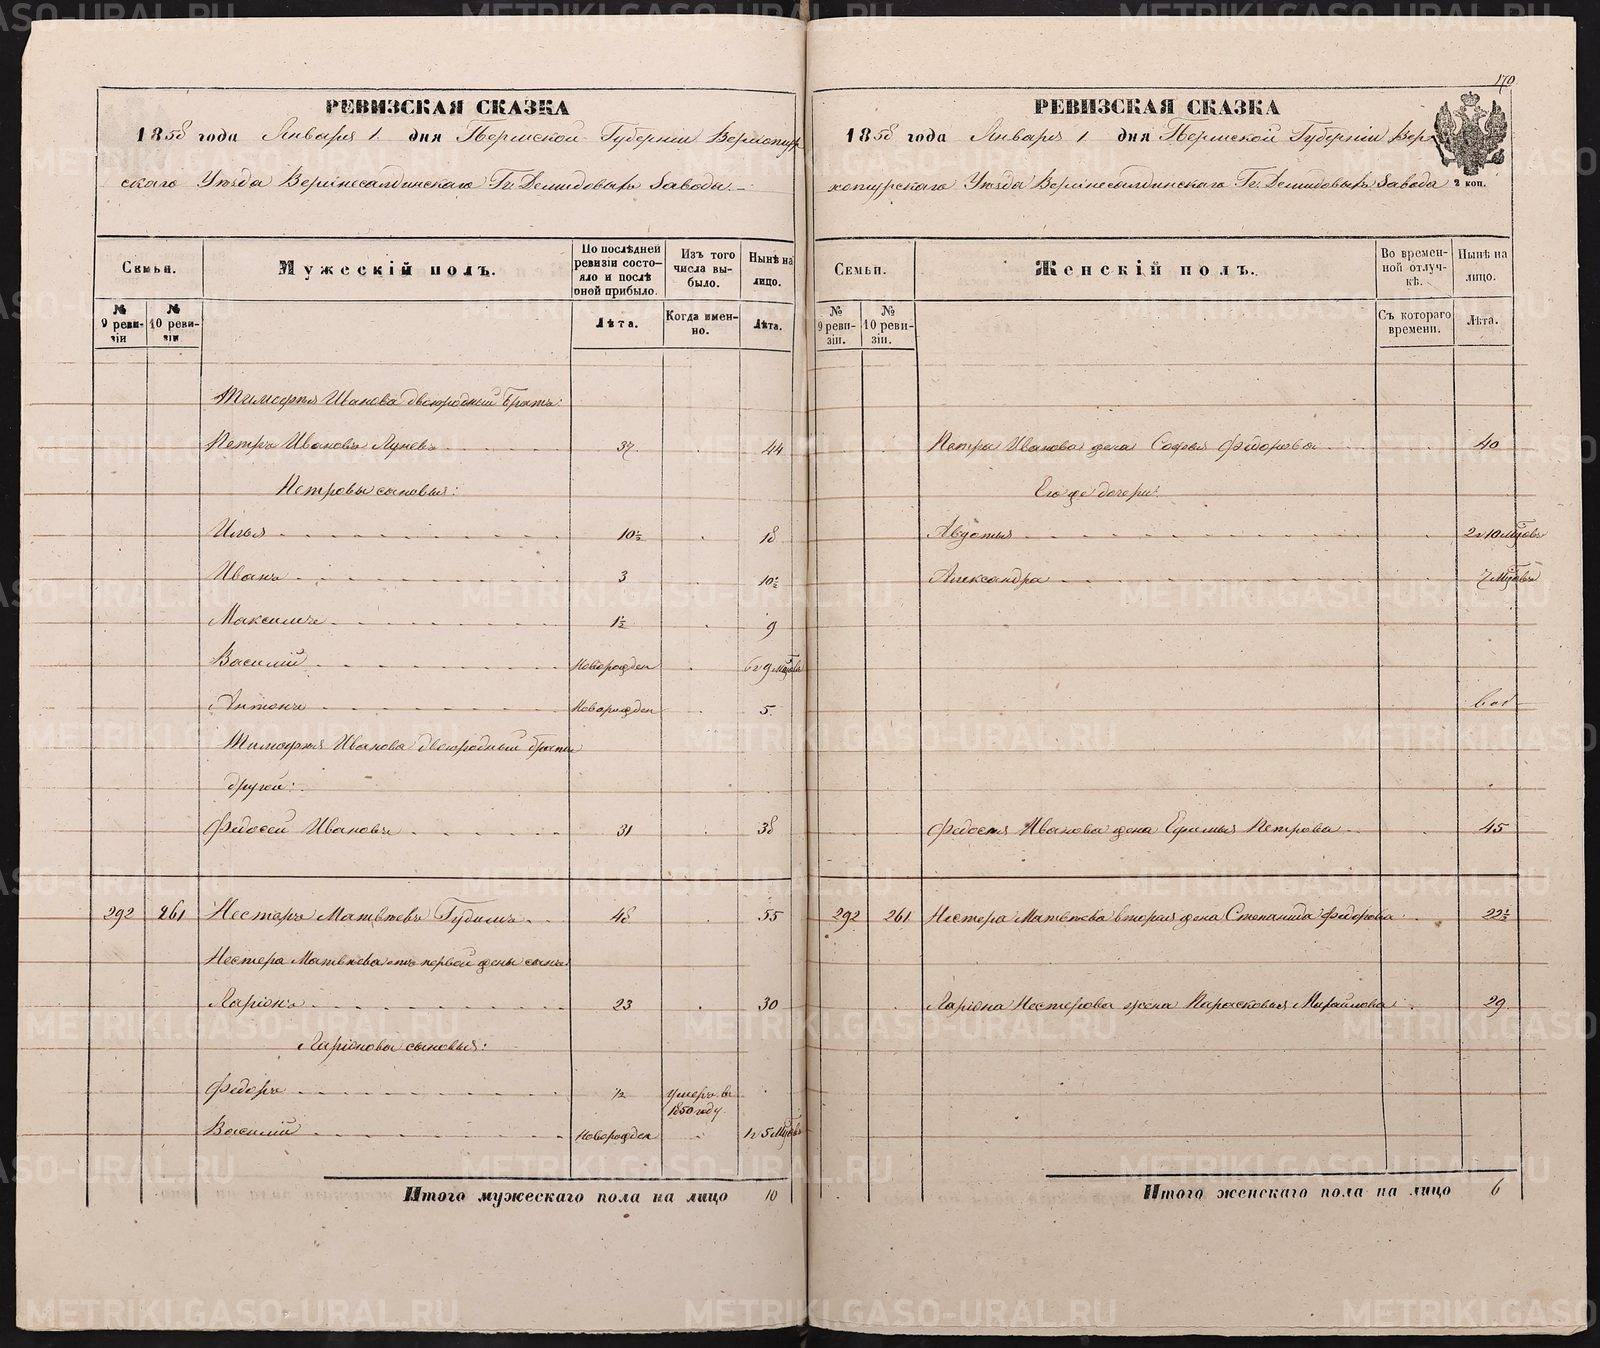 РЕВИЗСКАЯ СКАЗКА
1858 года Января 1 дня Пермской Губернии Верхотур
скаго Уѣзда Верхнесалдинскаго Гг. Демидовыхъ Завода
Семьи.
Мужескій полъ.
По послѣдней ревизіи состояло и послѣ оней прибыло.
Изъ того числа выбыло.
Нынѣ на лицо.
№ 9 ревизіи
№ 10 ревизіи
Лѣта.
Когда именно.
Лѣта.
Тимофея Иванова двоюродный братъ:
Петръ Ивановъ 37 44
Петровы сыновья:
Илья 10½ 18
Иванъ 3 10½
Максимъ 1½ 9
Василій Новорожден 6 г 9 мѣсяцовъ
Антонъ Новорожден 5
Тимофея Иванова двоюродный братъ
другой:
Федосей Ивановъ 31 38
292 261 Нестеръ Матвѣевъ Гудинъ 48 55
Нестера Матвѣева отъ первой жены сынъ
Ларіонъ 23 30
Ларіоновы сыновья:
Федоръ ½ умеръ въ 1850 году
Василій Новорожден 1 г 5 мѣсяцовъ
Итого мужескаго пола на лицо 10
170
РЕВИЗСКАЯ СКАЗКА
1858 года Января 1 дня Пермской Губерніи Верх
хотурскаго Уѣзда Верхнесалдинскаго Гг. Демидовыхъ Завода
2 коп.
Семьи.
Женскій полъ.
Во временной отлучкѣ.
Нынѣ на лицо.
№ 9 ревизіи.
№ 10 ревизіи.
Съ котораго времени.
Лѣта.
Петра Иванова жена Софья Федорова 40
Его же дочери:
Авдотья 2 г 10 мѣсяцовъ
Александра 7 мѣсяцовъ
Федосея Иванова жена Ефимья Петрова 45
292 261 Нестера Матвѣева вторая жена Степанида Федорова 22½
Ларіона Нестерова жена Парасковья Михайлова 29
Итого женскаго пола на лицо 6
METRIKI.GASO-URAL.RU